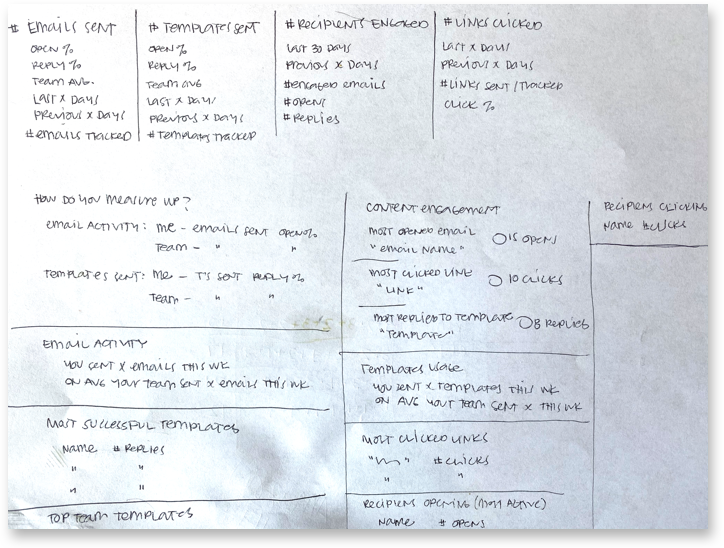 # Emails Sent
open %
Reply %
Team Avg.
Last x Days
Previous x Days
# emails Tracked
# Templates Sent
open %
Reply %
Team Avg
Last x Days
Previous x Days
# Templates Tracked
# Recipients Engaged
Last 30 Days
Previous x Days
# engaged emails
# opens
# Replies
# Links Clicked
Last x Days
Previous x Days
# Links Sent / Tracked
Click %
How do you measure up?
email Activity: me - emails sent open %
Team - " "
Templates sent: me - T's sent Reply %
Team - " "
Email Activity
You sent x emails this wk
on avg your team sent x emails this wk
Most Successful Templates
Name # Replies
" "
" "
Top Team Templates
Content engagement
most opened email
"email name" 15 opens
most clicked link
"Link" 10 clicks
most replies to template
"Template" 8 Replies
Templates Usage
You sent x templates this wk
on avg your team sent x this wk
Most clicked links
" " # clicks
" "
Recipient Opening (most active)
Name # opens
Recipient Clicking
Name # clicks